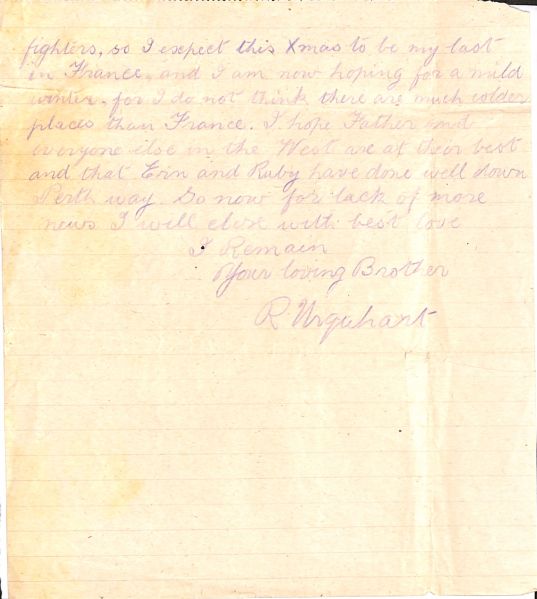 fighters, so I expect this Xmas to be my last
in France, and I am now hoping for a mild
winter, for I do not think there are much colder
places than France. I hope Father and
everyone else in the West are at their best
and that Evin and Ruby have done well down
Perth way. So now for lack of more
news I will close with best love
I Remain
Your loving Brother
R Urquhart